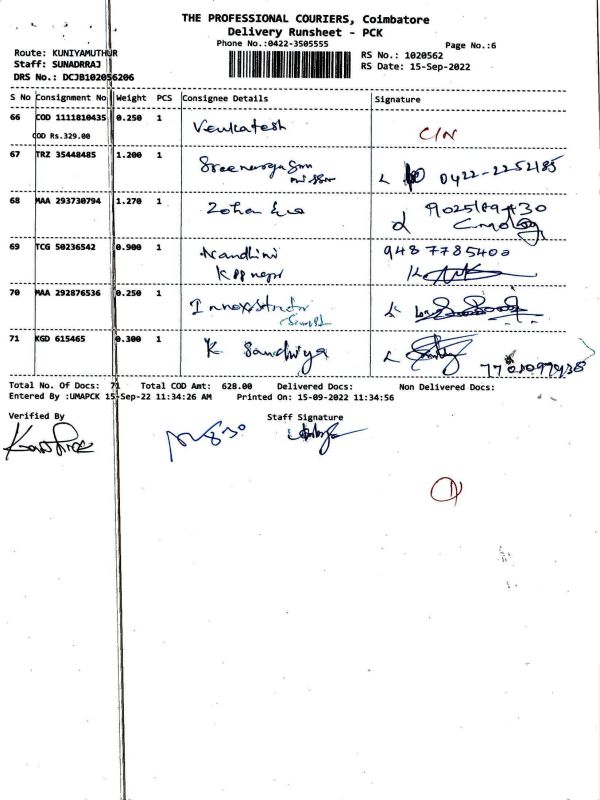 THE PROFESSIONAL COURIERS, Coimbatore
Delivery Runsheet - PCK
Phone No.:0422-3505555
Page No.:6
Route: KUNIYAMUTHUR
Staff: SUNADRRAJ
DRS No.: DCJB102056206
RS No.: 1020562
RS Date: 15-Sep-2022
S No Consignment No Weight PCS Consignee Details Signature
66 COD 1111810435 0.250 1 Venkatesh C/N
COD Rs.329.00
67 TRZ 35448485 1.200 1 0422-2252185
68 MAA 293730794 1.270 1
69 TCG 50236542 0.900 1 Nandhini 9487785400
70 MAA 292876536 0.250 1
71 KGD 615465 0.300 1 K Sandhiya
Total No. Of Docs: 71 Total COD Amt: 628.00 Delivered Docs: Non Delivered Docs:
Entered By :UMAPCK 15-Sep-22 11:34:26 AM Printed On: 15-09-2022 11:34:56
Verified By Staff Signature